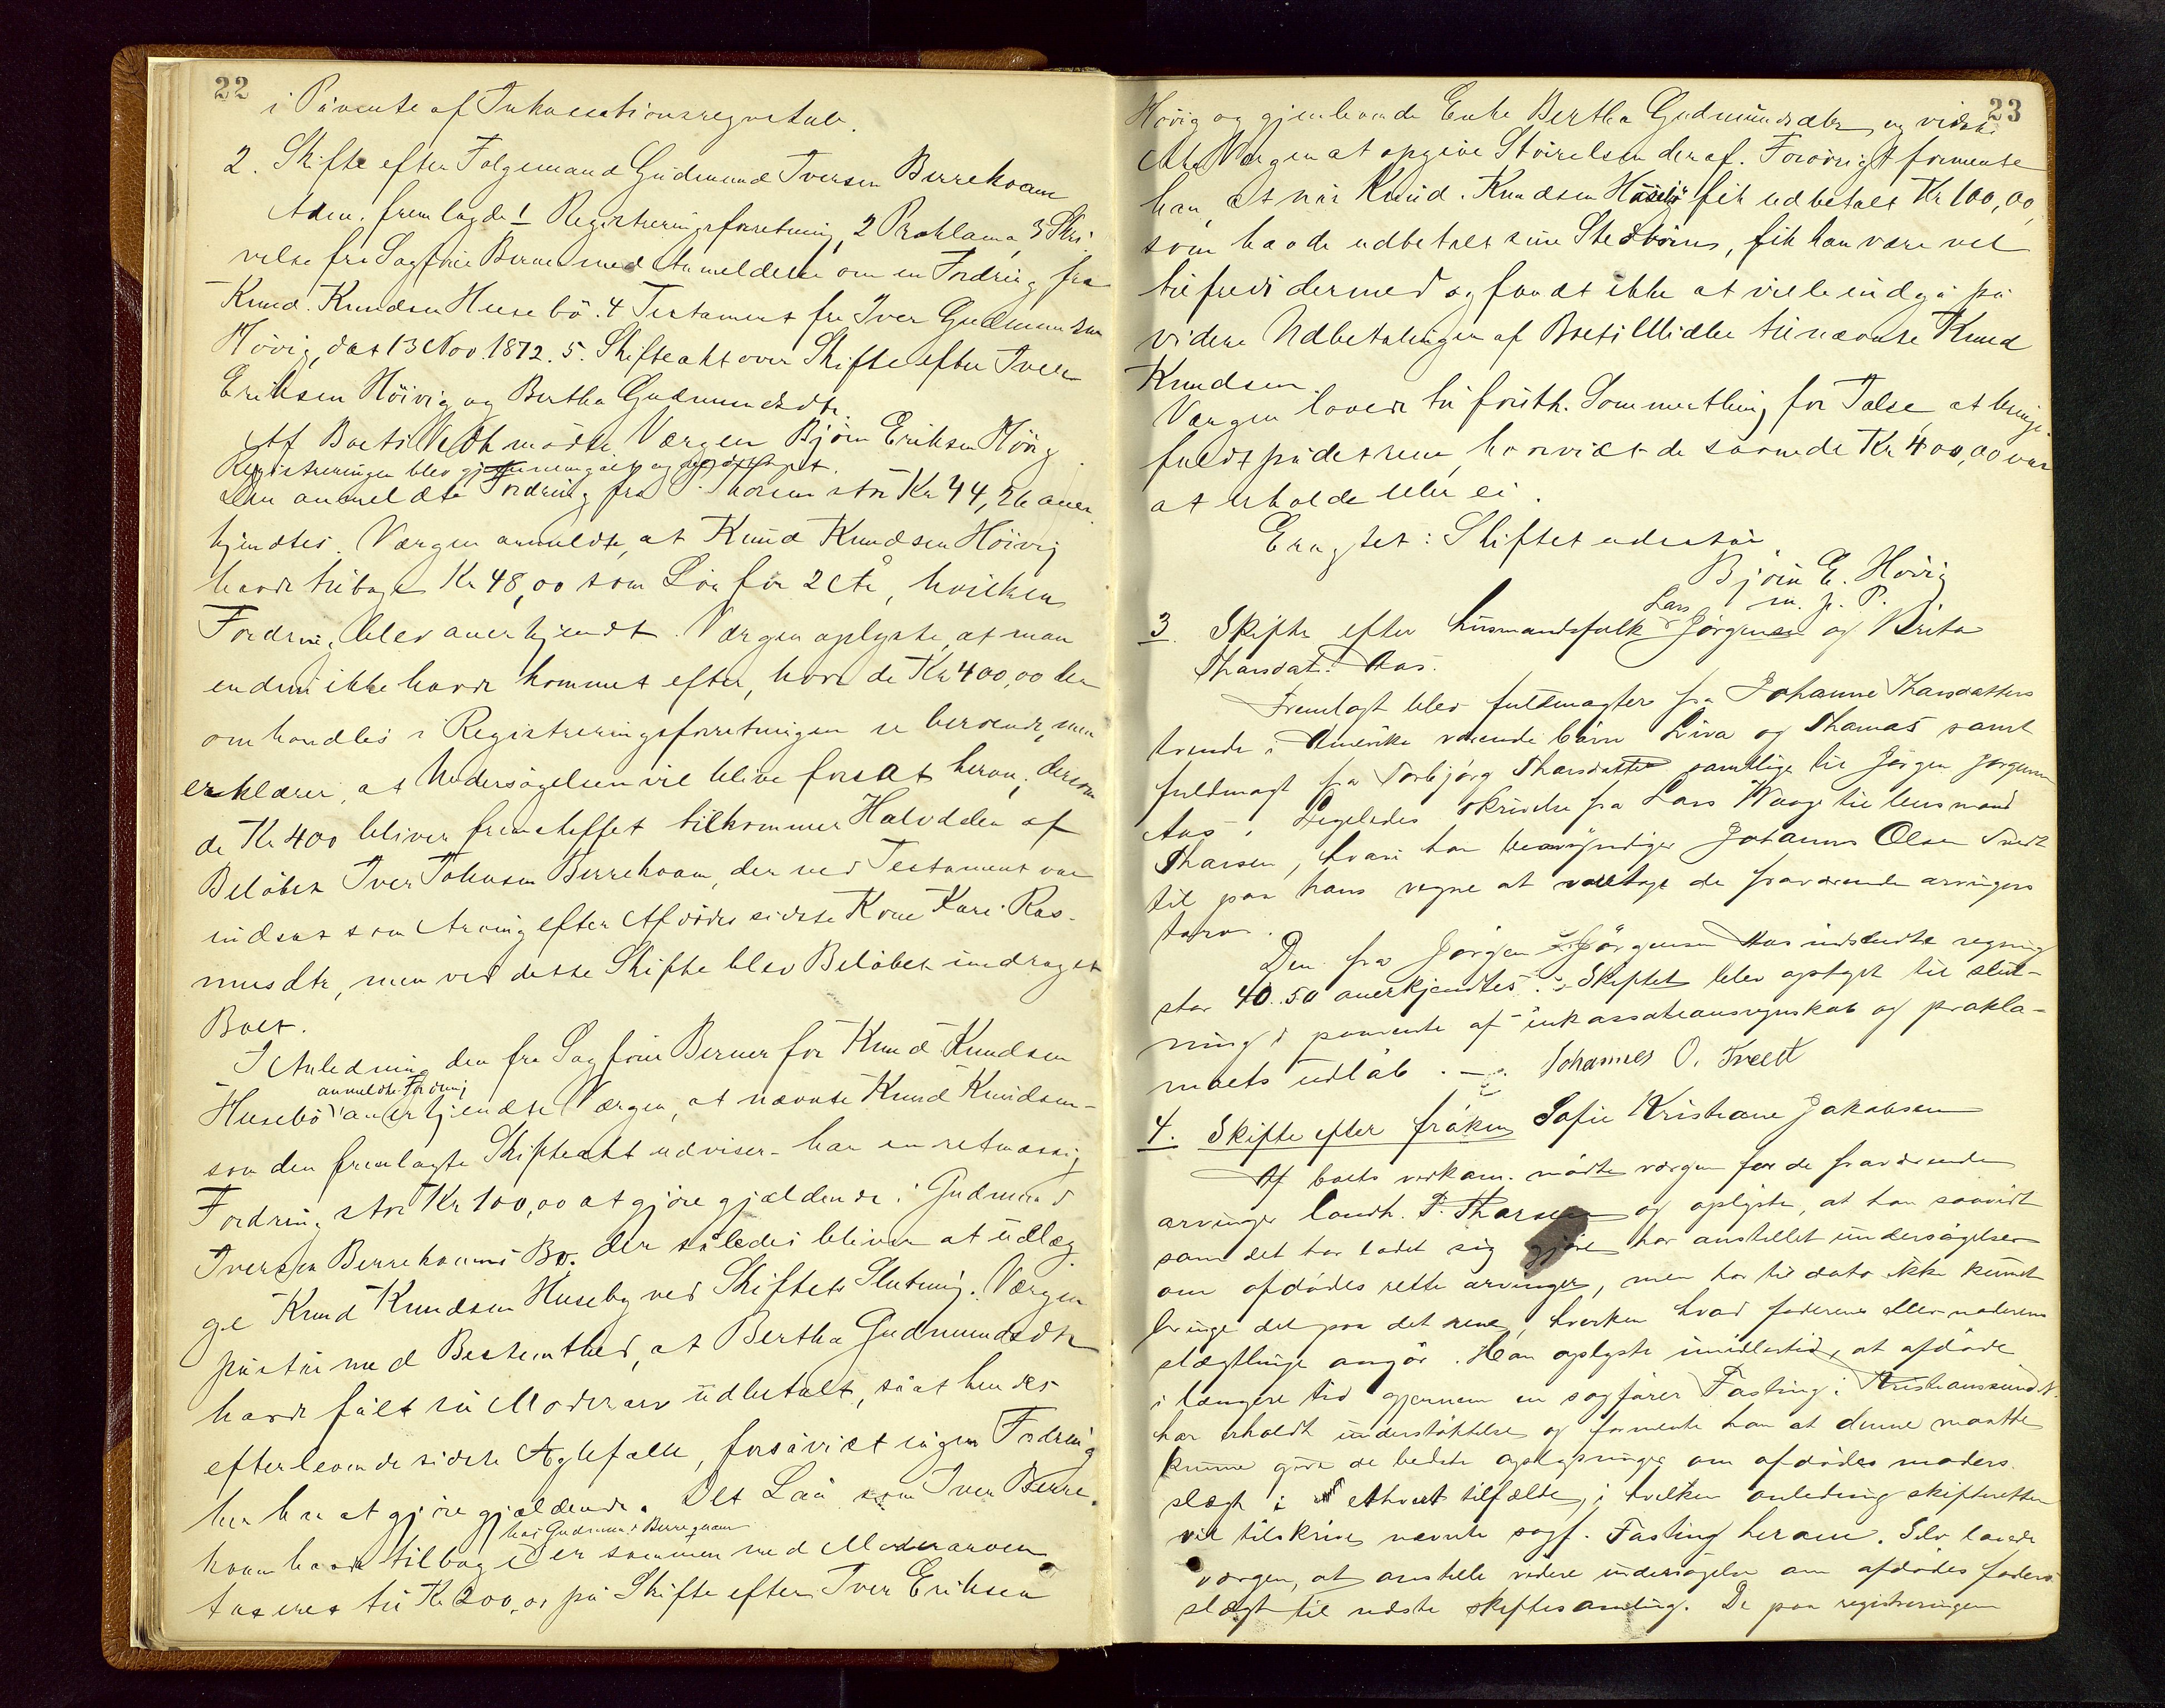 22
i Påvente af Inkassationsregnskab.
2. Skifte efter Følgemand Gudmund Iversen Berrekvam
Adm. fremlagde 1 Registreringsforretning, 2 Proklama, 3 Skri-
velse fra Sagfører Berner med Anmeldelse om en Fordring fra
Knud Knudsen Husebö. 4 Testament fra Iver Gudmundsen
Hövig, dat 13 Nov. 1872. 5. Skifteakt over Skifte efter Iver
Eriksen Höivig og Bertha Gudmundsdtr.
Af Boets Vedk mödte Værgen Björn Eriksen Hövig.
Registreringen blev gjennemgået og
Den anmeldte Fordring fra P. Thorsen stor Kr 44,26 aner-
kjendtes. Værgen anmeldte, at Knud Knudsen Höivig
havde tilbage Kr 48,00 som Lön for 2 År, hvilken
Fordring blev anerkjendt. Værgen oplyste, at man
endnu ikke havde kommet efter, hvor de Kr 400,00 der
omhandles i Registreringsforretningen er beroende, men
erklærer, at Undersögelsen vil blive forsat herom; dersom
de Kr 400 bliver fremskaffet tilkommer Halvdelen af
Belöbet Iver Johnsen Berrekvam, der ved Testament var
indsat som Arving efter Afdödes sidste Kone Kari Ras-
musdtr, men ved dette Skifte blev Belöbet inddraget
Boet.
I Anledning den fra Sagförer Berner for Knud Knudsen
anmeldte Fordring
Husebö anerkjendte Værgen, at nævnte Knud Knudsen -
som den fremlagte Skifteakt udviser - har en retmæssig
Fordring stor Kr 100,00 at gjöre gjældende i Gudmund
Iversen Berrekvams Bo. der således bliver at udlæg-
ge Knud Knudsen Huseby ved Skiftets Slutning. Værgen
påstår med Bestemthed, at Bertha Gudmundsdtr
havde fået sin Moderarv udbetalt, så at hendes
efterlevende sidste Ægtefælle, forsåvidt ingen Fordring
her har at gjöre gjældende. Det Lån som Iver Berre-
hos Gudmund Berreqvam
kvam havde tilbage er sammen med Moderarven
taxeret til Kr 200,00 på Skifte efter Iver Eriksen
23
Hövig og gjenlevende Enke Bertha Gudmundsdtr, og vidste
ikke Værgen at opgive Störrelsen deraf. Forövrigt formente
han, at når Knud Knudsen Husebö fik udbetalt Kr 100,00,
som havde udbetalt sine Stedbörns, fik han være vel
tilfreds dermed og fandt ikke at ville indgå på
videre Udbetalinger af Boets Midler til nævnte Knud
Knudsen.
Værgen lovede til först. Sommerthing for Talse at bringe
fuldt på det rene, hvorvidt de savnede Kr 400,00 var
at erholde eller ei.
Eragtet: Skiftet udestår
Björn E. Hövig
m. p. P.
3. Skifte efter husmandsfolk Lars Jörgensen og Brita
Tharsdat. Aas.
Fremlagt blev fuldmagter fra Johanne Tharsdatters
tvende i Amerika værende börn Liva og Thomas samt
fuldmagt fra Torbjörg Tharsdatter samtlige til Jörgen Jörgensen
Aas. Ligeledes skrivelse fra Lars Waage til lensmand
Tharsen, hvori han bemyndiger Johannes Olsen Tvedt
til paa hans vegne at varetage de fraværende arvingers
tarv.
Den fra Jörgen Jörgensen Aas indsendte regning
stor 40.50 anerkjendtes. Skiftet blev optaget til slut-
ning i paavente af inkassationsregnskab og prokla-
maets udlöb. — Johannes O. Tveit
4. Skifte efter fröken Sofie Kristiane Jakobsen
Af boets vedkom. mödte værgen for de fraværende
arvinger landh. P. Tharsen og oplyste, at han saavidt
som det har ladet sig gjöre har anstillet undersögelser
om afdödes rette arvinger, men har til dato ikke kunnet
bringe det paa det rene, hverken hvad faderens eller moderens
slægtlinje angår. Han oplyste imidlertid, at afdöde
i længere tid gjennem en sagförer Fasting i Kristianssund N.
har erholdt understöttelse og formente han at denne maatte
kunne give de bedste oplysninger om afdödes moders
slægt i ethvert tilfælde, i hvilken anledning skifteretten
vil tilskrive nævnte sagf. Fasting herom. Selv lovede
værgen, at anstille videre undersögelse om afdödes faders
slægt til næste skiftesamling. De paa registreringen